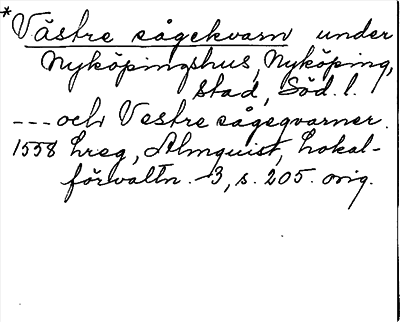 * Västre sågekvarn under
Nyköpingshus, Nyköping,
stad, Söd. l.
--- och Vestre sågeqvarner.
1558 hreg, Almquist, Lokal-
förvaltn. 3, s. 205. orig.